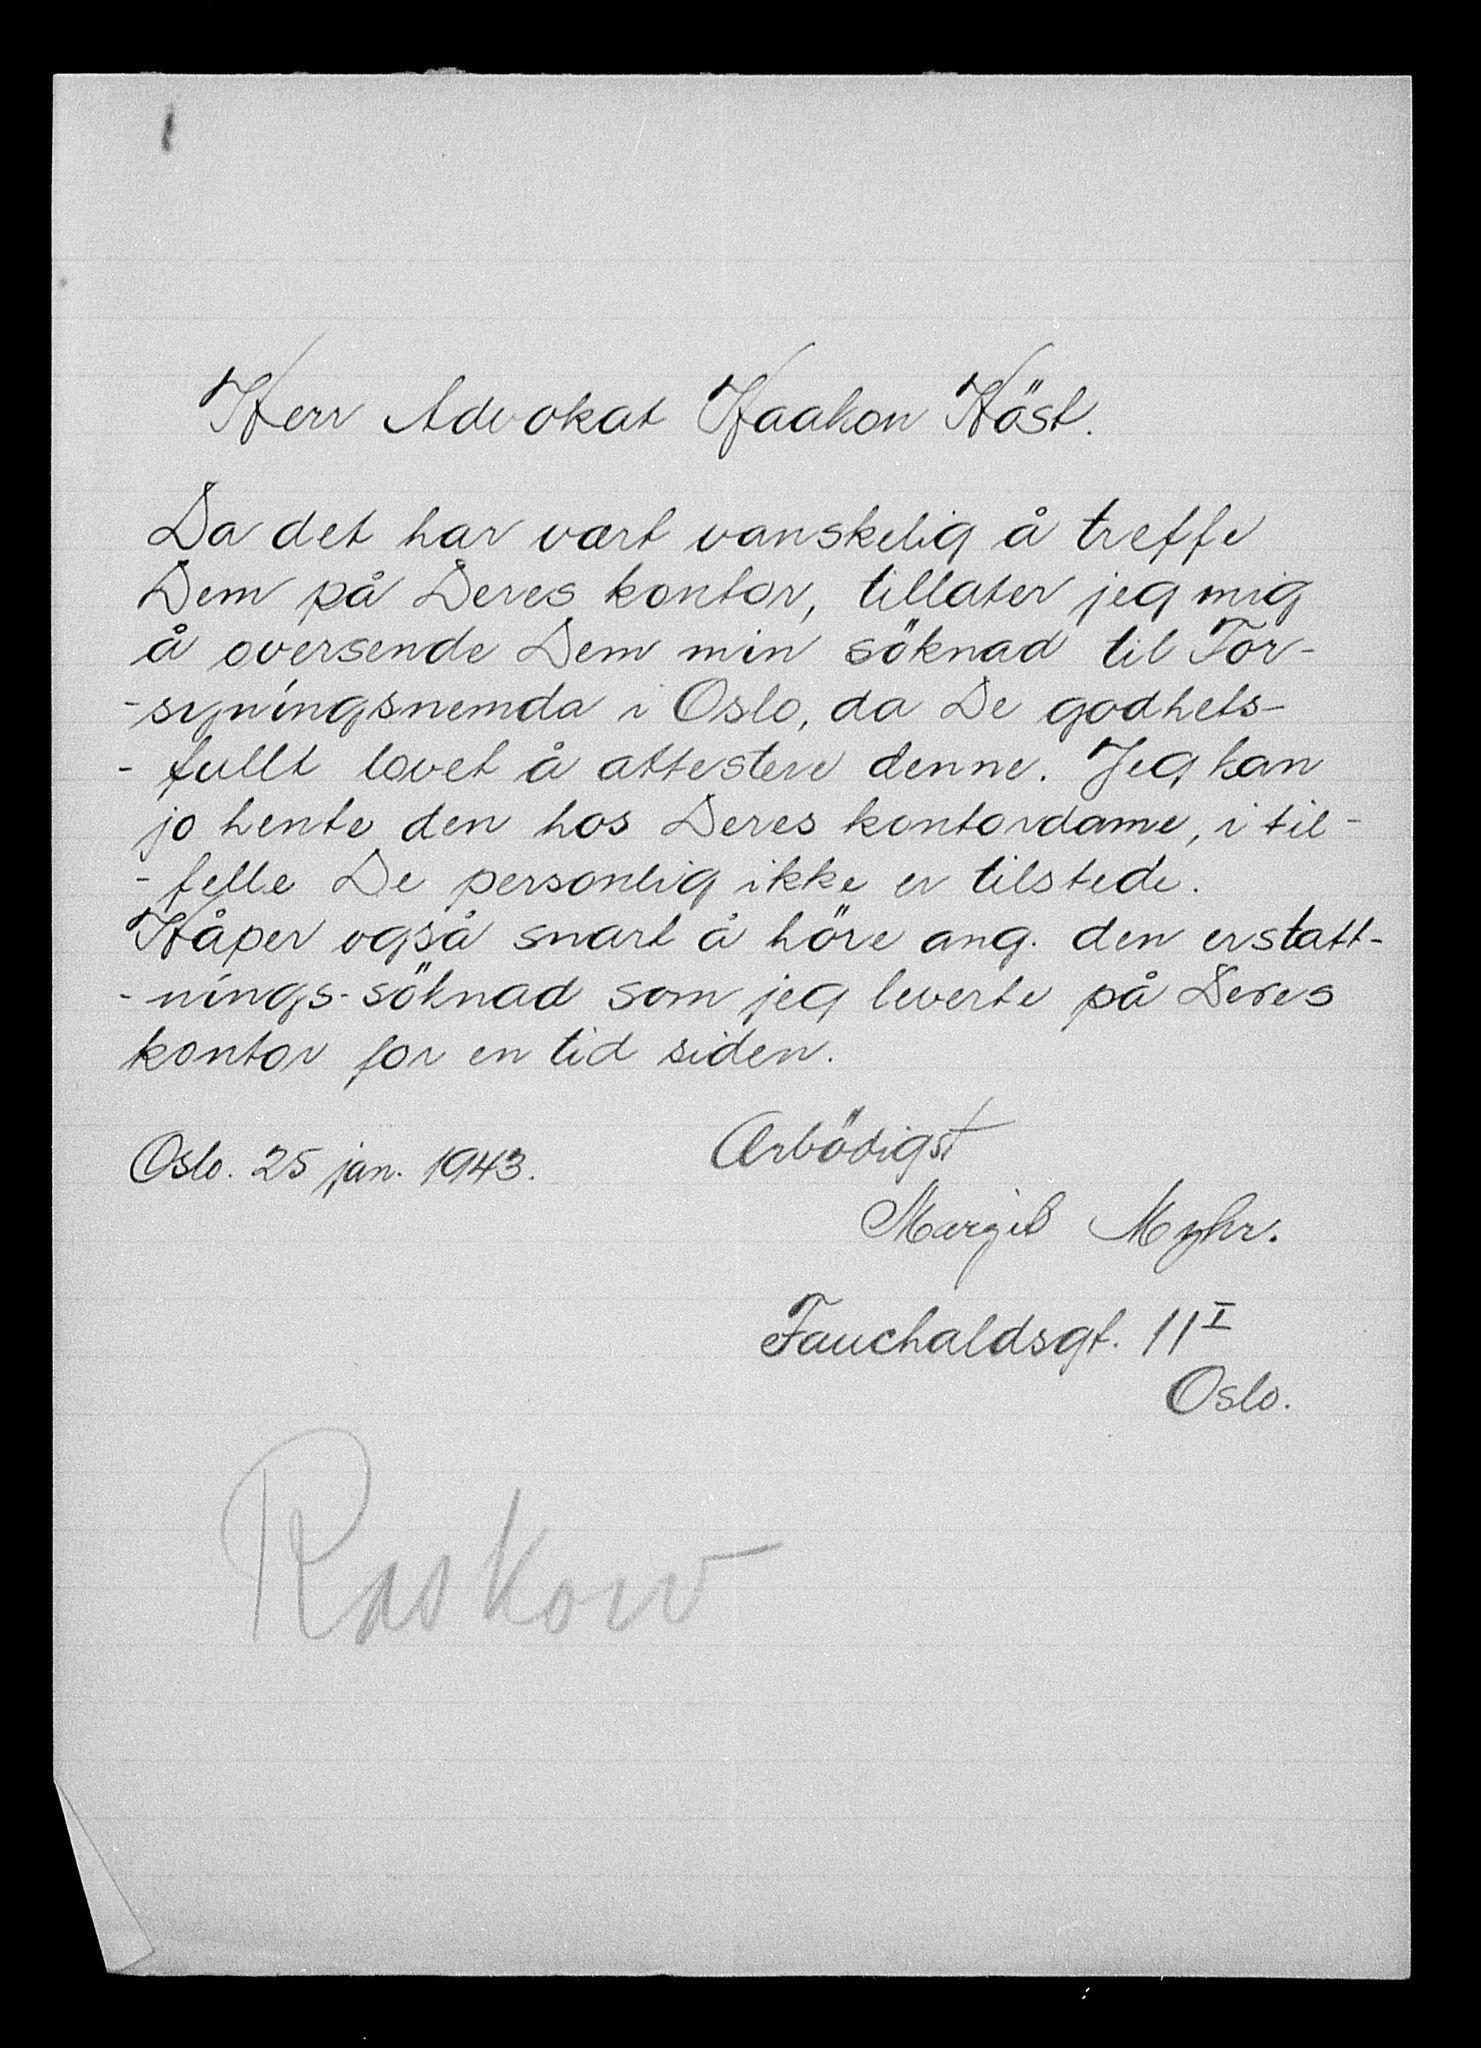 Herr Advokat Haakon Höst.
Da det har vært vanskelig å treffe
Dem på Deres kontor, tillater jeg mig
å oversende Dem min söknad til For-
-syningsnemda i Oslo, da De godhets-
- fullt lovet å attestere denne. Jeg kan
jo hente den hos Deres kontordame, i til-
- felle De personlig ikke er tilstede.
Håper også snart å höre ang. den erstatt-
- nings-söknad som jeg leverte på Deres
kontor for en tid siden.
Oslo. 25 jan. 1943.
Ærbödigst
Margit Myhr.
Fauchaldsgt. 11 I
Oslo.
Raskow